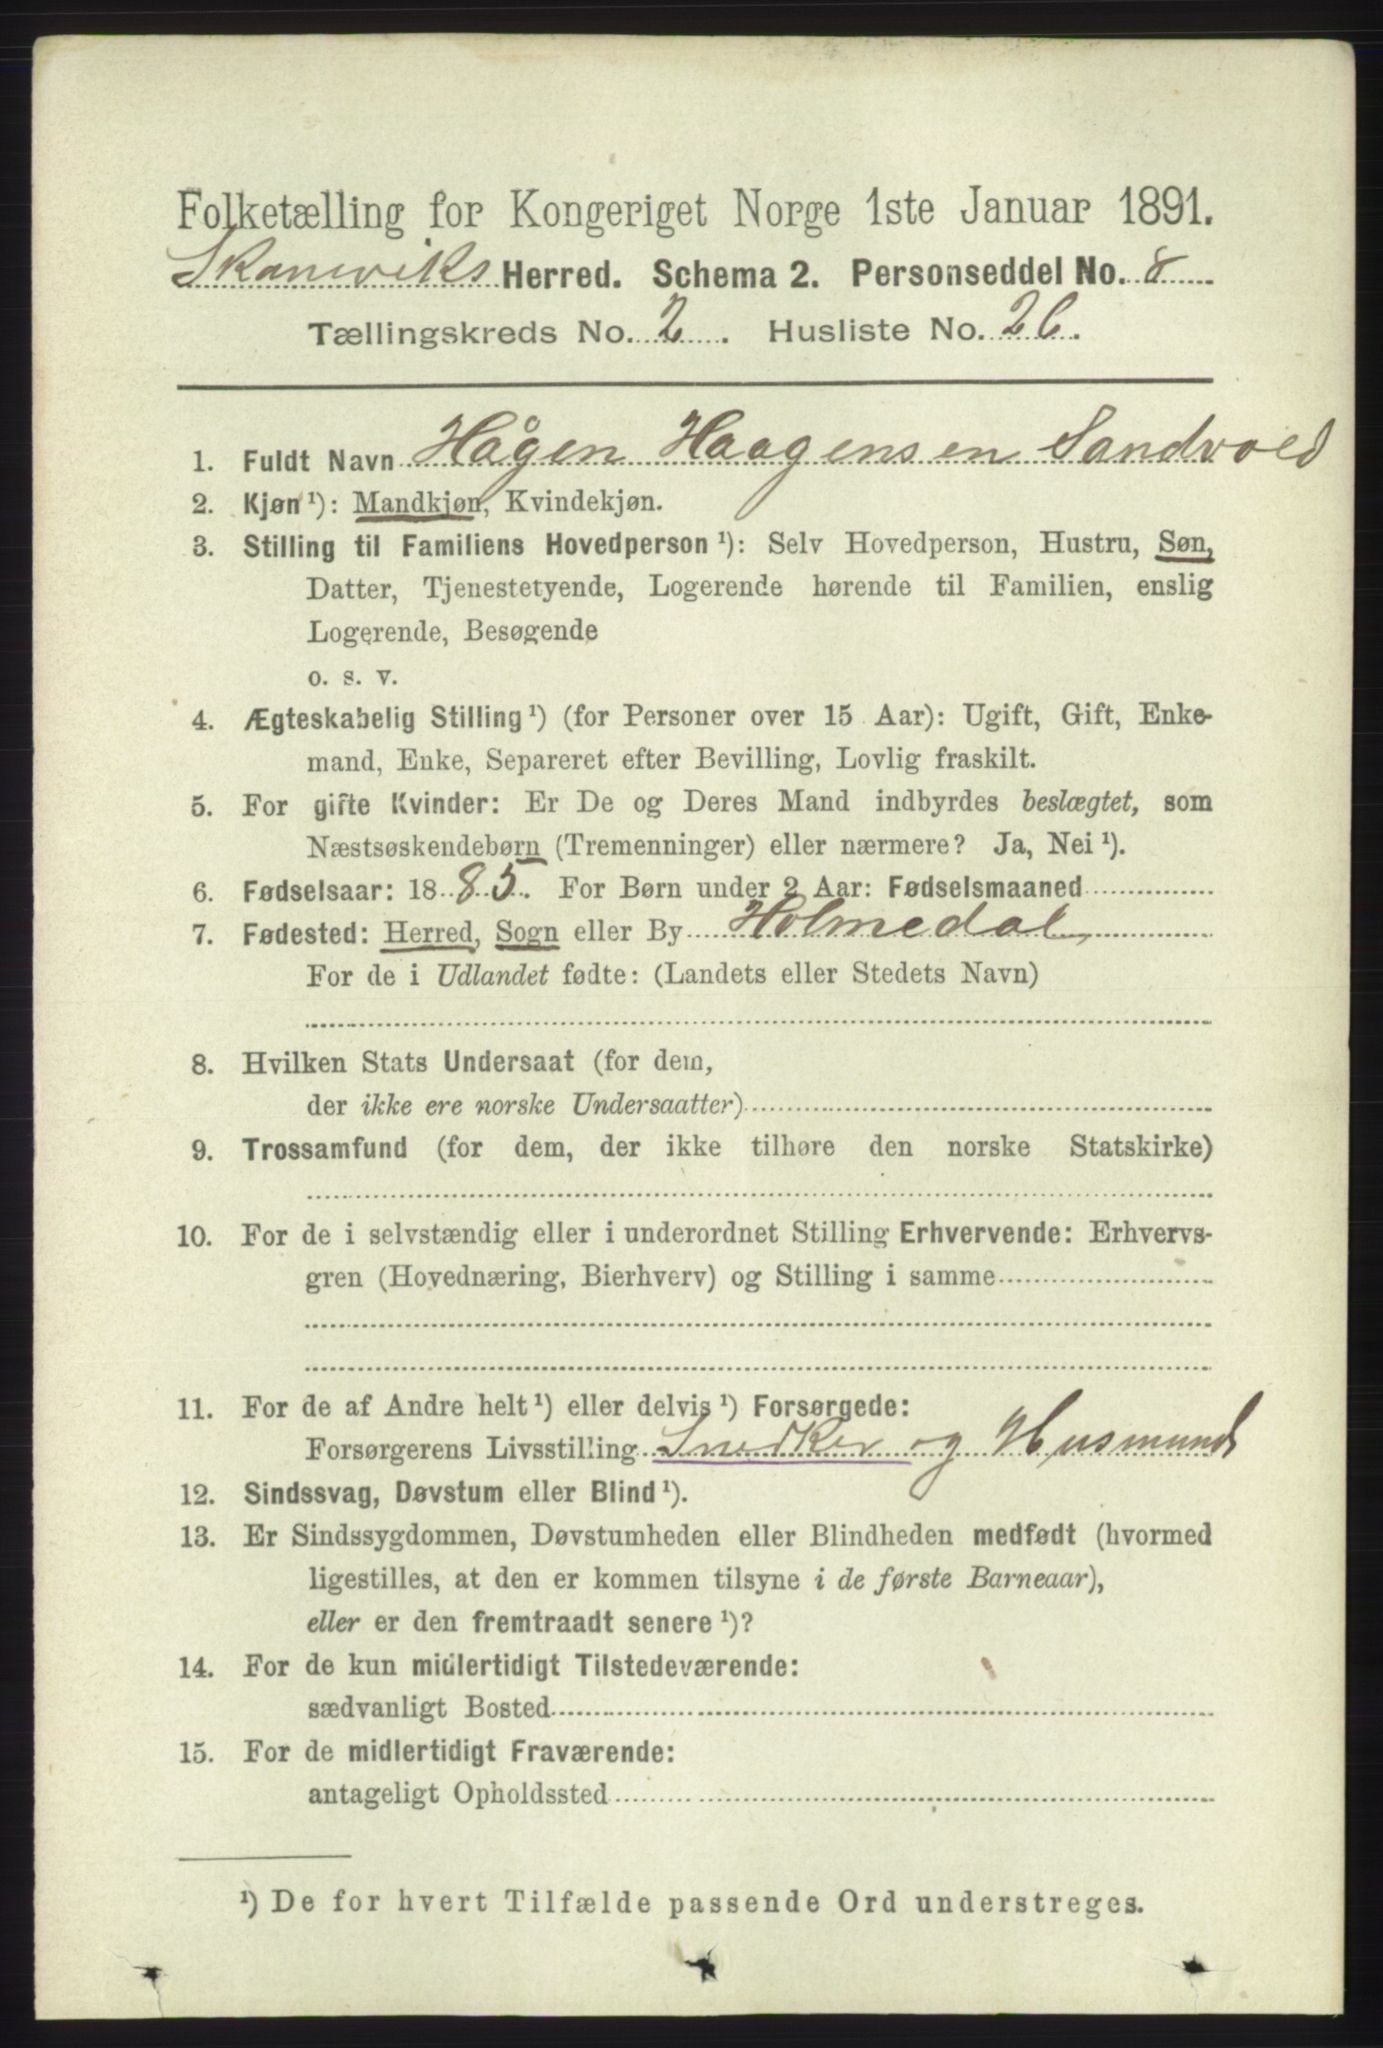 Folketælling for Kongeriget Norge 1ste Januar 1891.
Skaneviks Herred. Schema 2. Personseddel No. 8
Tællingskreds No. 2. Husliste No. 26.
1. Fuldt Navn Hågen Haagensen Sandvold
2. Kjøn¹): Mandkjøn, Kvindekjøn.
3. Stilling til Familiens Hovedperson¹): Selv Hovedperson, Hustru, Søn,
Datter, Tjenestetyende, Logerende hørende til Familien, enslig
Logerende, Besøgende
o. s. v.
4. Ægteskabelig Stilling¹) (for Personer over 15 Aar): Ugift, Gift, Enke-
mand, Enke, Separeret efter Bevilling, Lovlig fraskilt.
5. For gifte Kvinder: Er De og Deres Mand indbyrdes beslægtet, som
Næstsøskendebørn (Tremenninger) eller nærmere? Ja, Nei¹).
6. Fødselsaar: 1885. For Børn under 2 Aar: Fødselsmaaned
7. Fødested: Herred, Sogn eller By Holmedal
For de i Udlandet fødte: (Landets eller Stedets Navn)
8. Hvilken Stats Undersaat (for dem,
der ikke ere norske Undersaatter)
9. Trossamfund (for dem, der ikke tilhøre den norske Statskirke)
10. For de i selvstændig eller i underordnet Stilling Erhvervende: Erhvervs-
gren (Hovednæring, Bierhverv) og Stilling i samme
11. For de af Andre helt¹) eller delvis¹) Forsørgede:
Forsørgerens Livsstilling Snedker og Husmand
12. Sindssvag, Døvstum eller Blind¹).
13. Er Sindssygdommen, Døvstumheden eller Blindheden medfødt (hvormed
ligestilles, at den er kommen tilsyne i de første Barneaar),
eller er den fremtraadt senere¹)?
14. For de kun midlertidigt Tilstedeværende:
sædvanligt Bosted
15. For de midlertidigt Fraværende:
antageligt Opholdssted
¹) De for hvert Tilfælde passende Ord understreges.